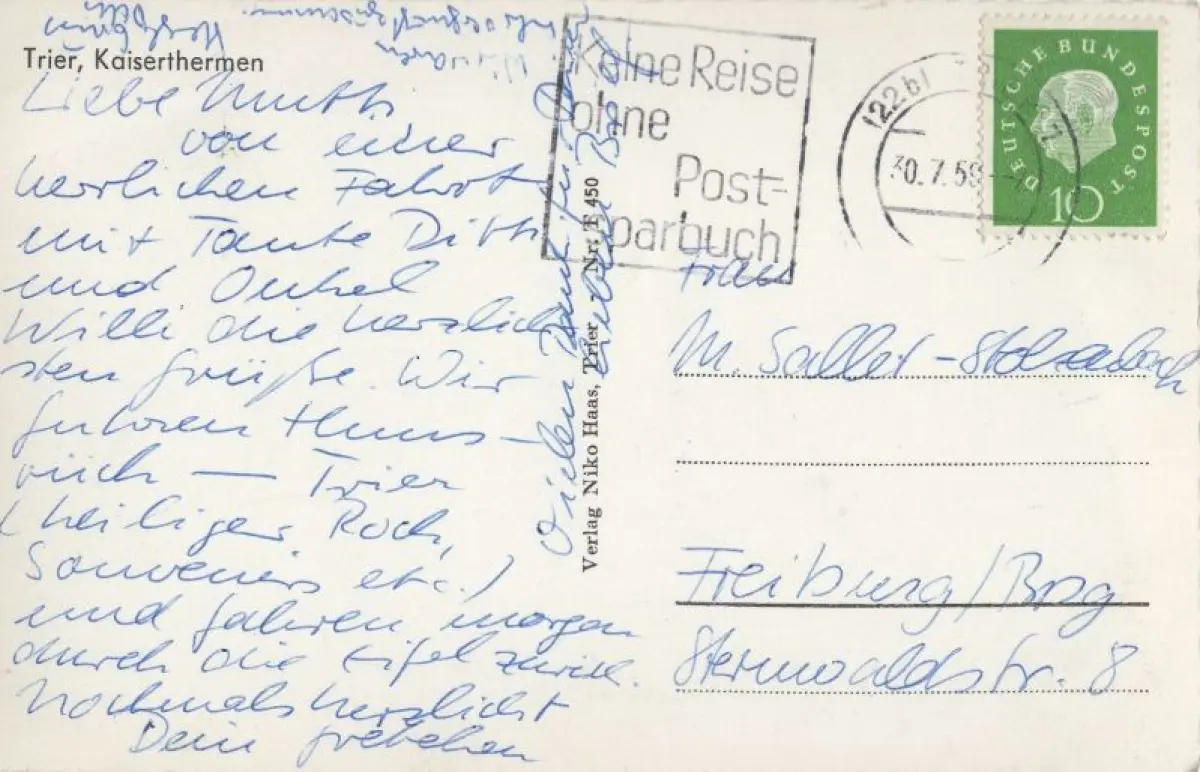 Trier, Kaiserthermen
Liebe Mutti,
von einer
herrlichen Fahrt
mit Tante Ditti
und Onkel
Willi die herzlich
sten Grüße. Wir
fuhren Huns-
rück — Trier
(heiliger Rock,
Souvenirs etc.)
und fahren morgen
durch die Eifel zurück.
Nochmals herzlichst
Dein
Vielen Dank für
lieben
Verlag Niko Haas, Trier Nr. 450
Keine Reise
ohne
Post-
sparbuch
(22b)
30.7.59
DEUTSCHE BUNDESPOST
10
Frau
M.
Freiburg/Brsg
Sternwaldstr. 8